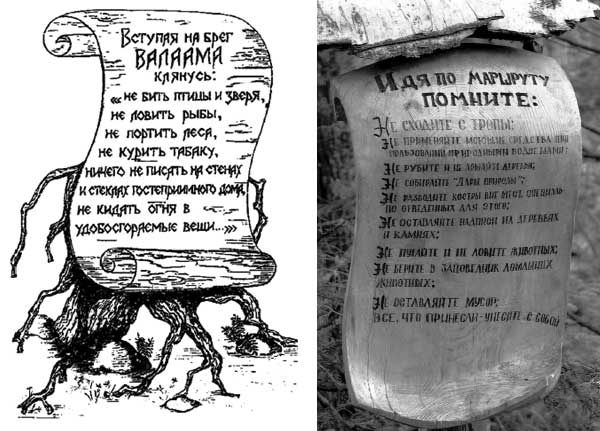 Вступая на брег
ВАЛААМА
клянусь:
„не бить птицы и зверя,
не ловить рыбы,
не портить леса,
не курить табаку,
ничего не писать на стенах
и стеклах гостеприимного дома,
не кидать огня в
удобосгораемые вещи...»
Идя по маршруту
помните:
Не сходите с тропы;
Не применяйте моющие средства при
пользовании природными водоемами;
Не рубите и не ломайте деревья;
Не собирайте "Дары природы";
Не разводите костры вне мест, специально
отведенных для этого;
Не оставляйте надписи на деревьях
и камнях;
Не пугайте и не ловите животных;
Не берите в заповедник домашних
животных;
Не оставляйте мусор;
Все, что принесли-унесите с собой